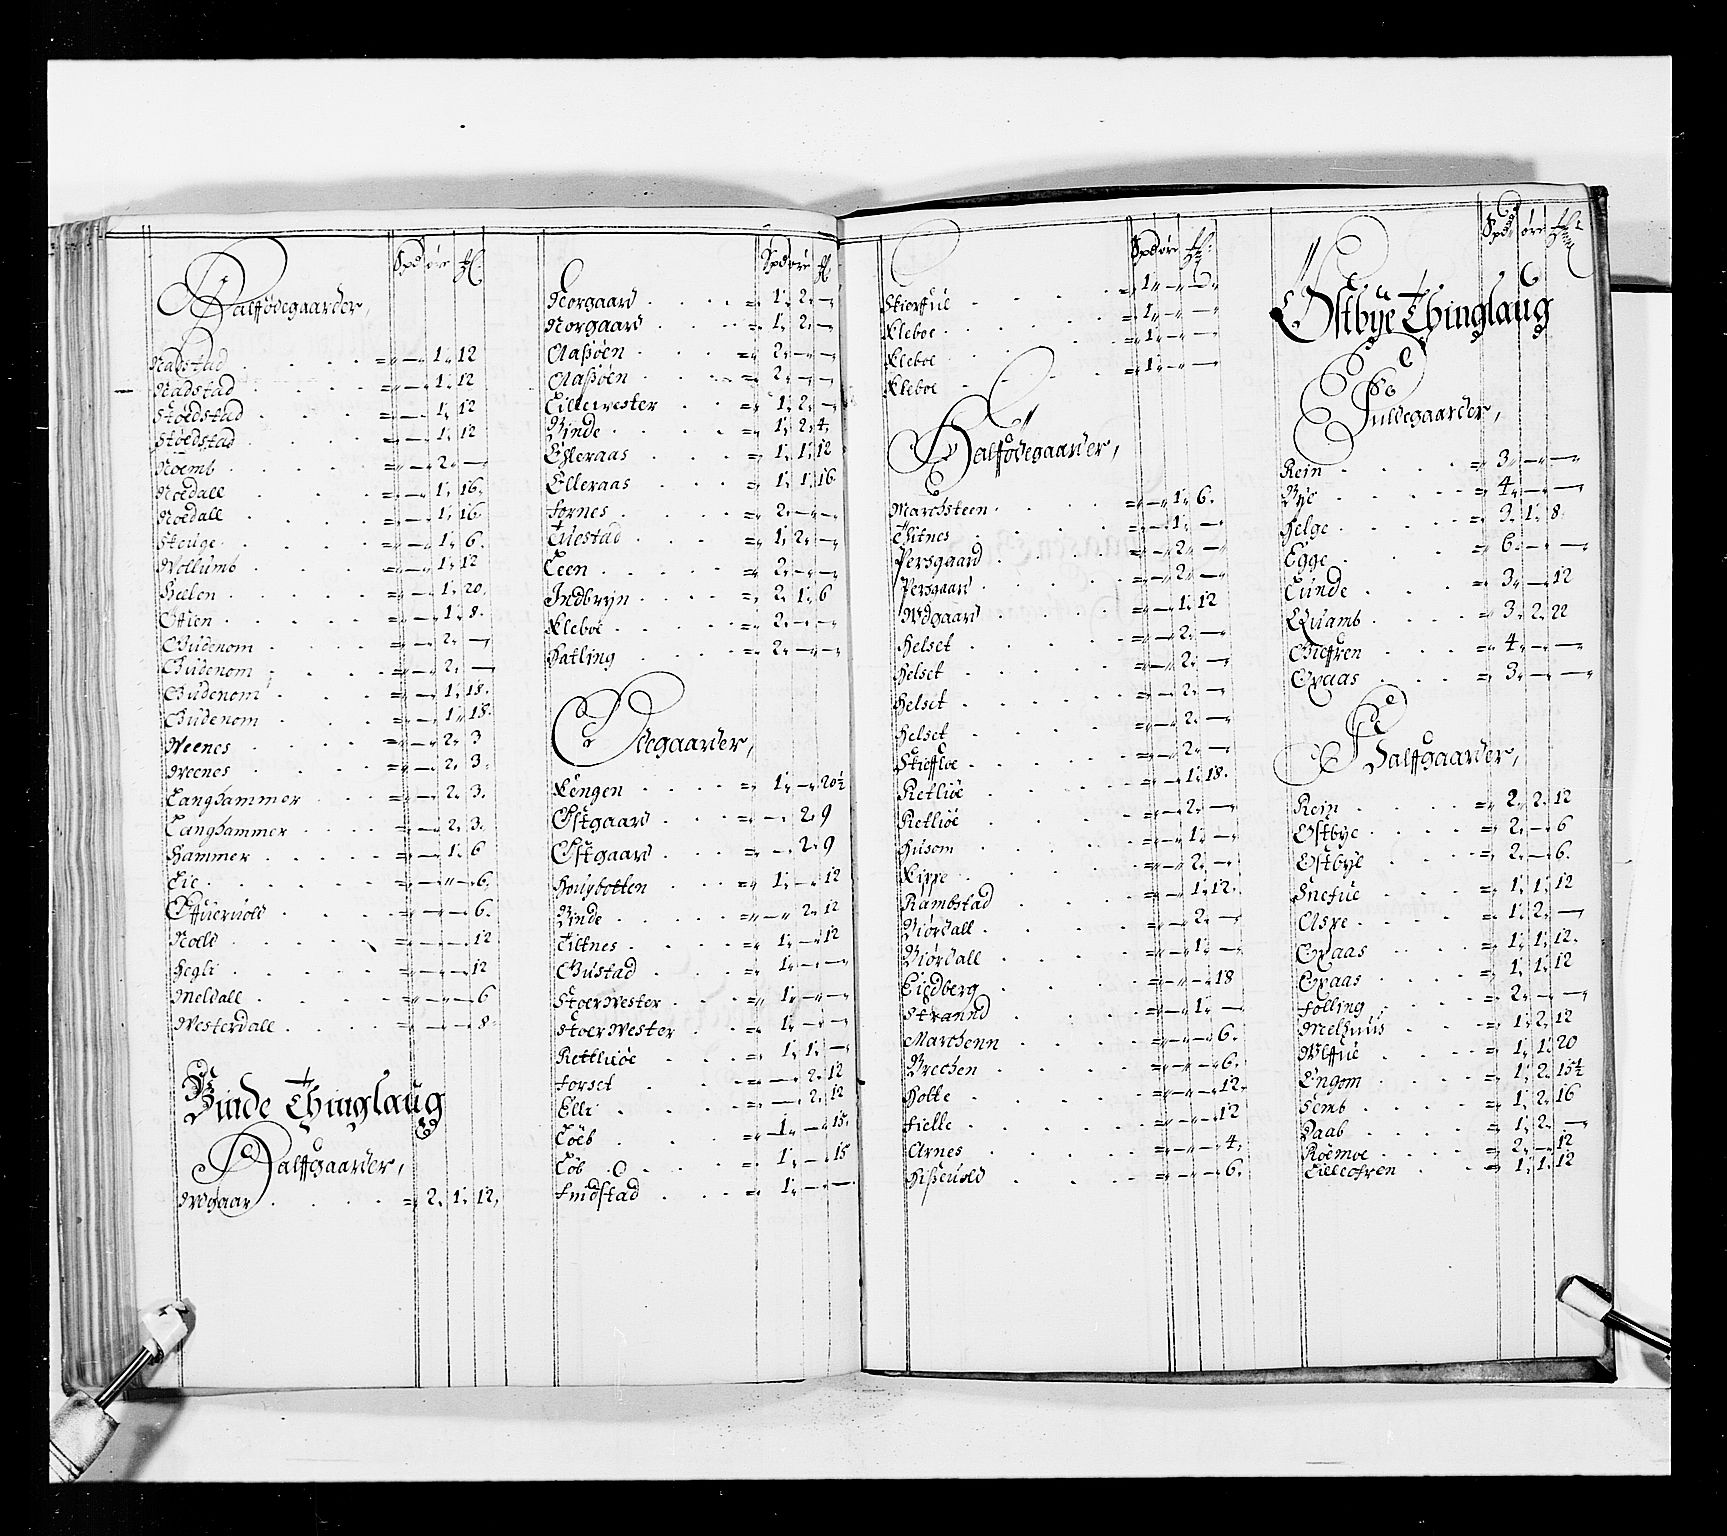 Spd øre
Halfødegaarder,
Nadstad . . . =„ — 1„ 12
Nadstad . . . =„ — 1„ 12
Stoedstad . . . =„ — 1„ 12
Stoedstad . . . =„ — 1„ 12
Noemb . . . =„ — 2„ —
Noedall . . . =„ — 1„ 16.
Noedall . . . =„ — 1„ 16.
Steuge . . . =„ — 1„ 6.
Wollumb . . . =„ — 1„ 12
Heelen . . . =„ — 1„ 20.
Ottien . . . =„ — 1„ 8.
Gudenom . . . =„ — 2„ —
Gudenom . . . =„ — 2„ —
Gudenom . . . =„ — 1„ 18.
Gudenom . . . =„ — 1„ 18.
Weenes . . . =„ — 2„ 3
Weenes . . . =„ — 2„ 3.
Langhammer . . . =„ — 2„ 3.
Langhammer . . . =„ — 2„ 3.
Hammer . . . =„ — 1„ 6
Lie . . . =„ — „ — 6.
Ottueruold . . . =„ — — 6.
Noell . . . =„ — — 12
Hegli . . . =„ — — 12
Meldall . . . =„ — — 6
Westerdall . . . =„ — — 8.
Binde Thinglaug
Halfgaarder,
Wdgaar . . . =„ 2„ 1„ 12,
Spd øre
Norgaard . . . =„ 1„ 2„ —
Norgaard . . . =„ 1„ 2„ —
Aaßøen . . . =„ 2„ — —
Aaßøen . . . =„ 2„ — —
Lillewester . . . =„ 1„ 2„ —
Binde . . . =„ 1„ 2„ 4.
Elleraas . . . =„ 1„ 1„ 12
Elleraas . . . =„ 1„ 1„ 16
Fornes . . . =„ 2„ — —
Tuestad . . . =„ 1„ 2„ —
Leen . . . =„ 2„ — —
Indbryn . . . =„ 2„ 1„ 6
Kleboe . . . =„ 2„ — —
Hatling . . . =„ 2„ — —
Ødegaarder,
Lengen . . . =„ 1„ — 20½
Østgaard . . . =„ — 2„ 9
Østgaard . . . =„ — 2„ 9
Houybotten . . . =„ 1„ — 12
Binde . . . =„ — 2„ 12
Tiltnes . . . =„ 1„ — 12
Gustad . . . =„ 1„ — —
Stoerwester . . . =„ 1„ — —
Stoerwester . . . =„ 1„ — —
Rettluoe . . . =„ 1„ 1„ —
Forset . . . =„ — 2„ 12
Elli . . . =„ — 2„ 12
Løeb . . . =„ 1„ — 15.
Løb . . . =„ 1„ — 15
Findstad . . . =„ 1„ — —
Spd øre
Skierffue . . . =„ 1„ — —
Kleboe . . . =„ 1„ — —
Kleboe . . . =„ 1„ — —
Kleboe . . . =„ 1„ — —
Halfødegaarder,
Marchsteen . . . =„ — 1„ 6.
Thitnes . . . =„ — 1„ —
Persgaard . . . =„ — 2„ —
Persgaard . . . =„ — 2„ —
Wdgaard . . . =„ — 1„ 12
Helset . . . =„ — 2„ —
Helset . . . =„ — 2„ —
Helset . . . =„ — 2„ —
Helset . . . =„ — 2„ —
Skieffloe . . . =„ — 2„ —
Retluoe . . . =„ — 1„ 18.
Retluoe . . . =„ — 2„ —
Husom . . . =„ — 1„ —
Kippe . . . =„ — 2„ —
Rambstad . . . =„ — 1„ 12.
Biørdall . . . =„ — 2„ —
Biørdall . . . =„ — 1„ —
Liedberg . . . =„ — — 18
Strannd . . . =„ — 1„ —
Marchenn . . . =„ — — 6.
Brechen . . . =„ — — 6.
Holte . . . =„ — — 12.
Fielle . . . =„ — — 12
Arnes . . . =„ — — 4.
Hißeuold . . . =„ — — 6.
Spd øre
Østbye Thinglaug
Fuldegaarder,
Rein . . . =„ 3„ — —
Bye . . . =„ 4„ — —
Helge . . . =„ 3„ 1„ 8.
Egge . . . =„ 6„ — —
Lunde . . . =„ 3„ — 12
Quamb . . . =„ 3„ 2„ 22
Gieffren . . . =„ 4„ — —
Opaas . . . =„ 3„ — —
Halfgaarder,
Rein . . . =„ 2„ 2„ 12
Østbye . . . =„ 2„ — 6
Østbye . . . =„ 2„ — 6.
Snefue . . . =„ 1„ 1„ 12
Aspe . . . =„ 1„ 2„ —
Opaas . . . =„ 1„ 1„ 12.
Opaas . . . =„ 1„ 1„ 12
Følling . . . =„ 2„ — —
Melhuus . . . =„ 1„ 2„ 12
Wlffue . . . =„ 1„ 1„ 20
Engom . . . =„ 1„ 2„ 15½
Semb . . . =„ 1„ 2„ 16
Daab . . . =„ 1„ 2„ —
Røemoe . . . =„ 2„ — 12
Lilleofren . . . =„ 1„ 1„ 12